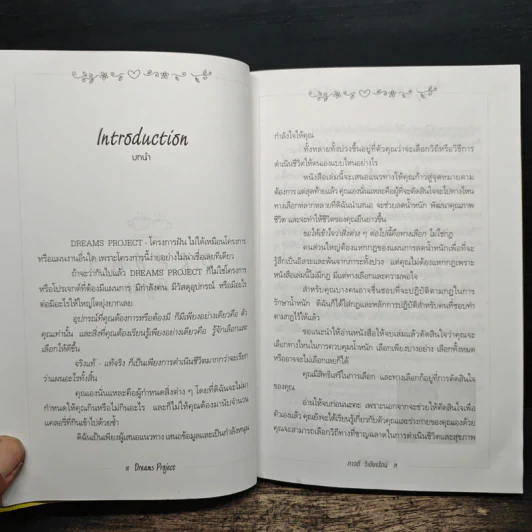 Introduction
บทนำ
DREAMS PROJECT - โครงการฝัน ไม่ได้เหมือนโครงการ
หรือแผนงานอื่นใด เพราะโครงการนี้ง่ายอย่างไม่น่าเชื่อเลยทีเดียว
ถ้าจะว่ากันไปแล้ว DREAMS PROJECT ก็ไม่ใช่โครงการ
หรือโปรเจกต์ที่ต้องมีแผนการ มีกำลังคน มีวัสดุอุปกรณ์ หรือมีอะไร
ต่อมีอะไรให้ใหญ่โตยุ่งยากเลย
อุปกรณ์ที่คุณต้องการหรือต้องมี ก็มีเพียงอย่างเดียวคือ ตัว
คุณเท่านั้น และสิ่งที่คุณต้องเรียนรู้เพียงอย่างเดียวคือ รู้จักเลือกและ
เลือกให้ดีขึ้น
จริงแท้ - แท้จริง ก็เป็นเพียงการดำเนินชีวิตมากกว่าจะเรียก
ว่าแผนอะไรทั้งสิ้น
คุณเองนั่นแหละคือผู้กำหนดสิ่งต่าง ๆ โดยที่ดิฉันจะไม่มา
กำหนดให้คุณกินหรือไม่กินอะไร และก็ไม่ให้คุณต้องมานับจำนวน
แคลอรีที่กินเข้าไปด้วยซ้ำ
ดิฉันเป็นเพียงผู้เสนอแนวทาง เสนอข้อมูลและเป็นกำลังหนุน
Dreams Project
กำลังใจให้คุณ
ทั้งหลายทั้งปวงขึ้นอยู่ที่ตัวคุณว่าจะเลือกวิถีหรือวิธีการ
ดำเนินชีวิตให้ตนเองแบบไหนอย่างไร
หนังสือเล่มนี้จะเสนอแนวทางให้คุณก้าวสู่จุดหมายตาม
ต้องการ แต่สุดท้ายแล้ว คุณเองนั่นแหละคือผู้ที่จะตัดสินใจจะไปทางไหน
ทางเลือกหลากหลายที่ดิฉันนำเสนอ จะช่วยลดน้ำหนัก พัฒนาคุณภาพ
ชีวิต และจะทำให้ชีวิตของคุณยืนยาวขึ้น
ขอให้เข้าใจว่าสิ่งต่าง ๆ ต่อไปนี้คือทางเลือก ไม่ใช่กฎ
คนส่วนใหญ่ต้องแหกกฎของแผนการลดน้ำหนักเพื่อที่จะ
รู้สึกเป็นอิสระและพ้นจากภาระทั้งปวง แต่คุณไม่ต้องแหกกฎเพราะ
หนังสือเล่มนี้ไม่มีกฎ มีแต่ทางเลือกและความพอใจ
สำหรับคุณบางคนอาจชื่นชอบที่จะปฏิบัติตามกฎในการ
รักษาน้ำหนัก ดิฉันก็ได้ใส่กฎและหลักการปฏิบัติสำหรับคนที่ชอบทำ
ตามกฎไว้ให้แล้ว
ขอแนะนำให้อ่านหนังสือให้จบเล่มแล้วตัดสินใจว่าคุณจะ
เลือกทางไหนในการควบคุมน้ำหนัก เลือกเพียงบางอย่าง เลือกทั้งหมด
หรืออาจจะไม่เลือกเลยก็ได้
คุณมีสิทธิเสรีในการเลือก และทางเลือกก็อยู่ที่การตัดสินใจ
ของคุณ
อ่านให้จบก่อนนะคะ เพราะนอกจากจะช่วยให้ตัดสินใจเพื่อ
ตัวเองแล้ว คุณยังจะได้เรียนรู้เกี่ยวกับตัวคุณและร่างกายของคุณเองด้วย
คุณจะสามารถเลือกวิถีทางที่ชาญฉลาดในการดำเนินชีวิตและสุขภาพ